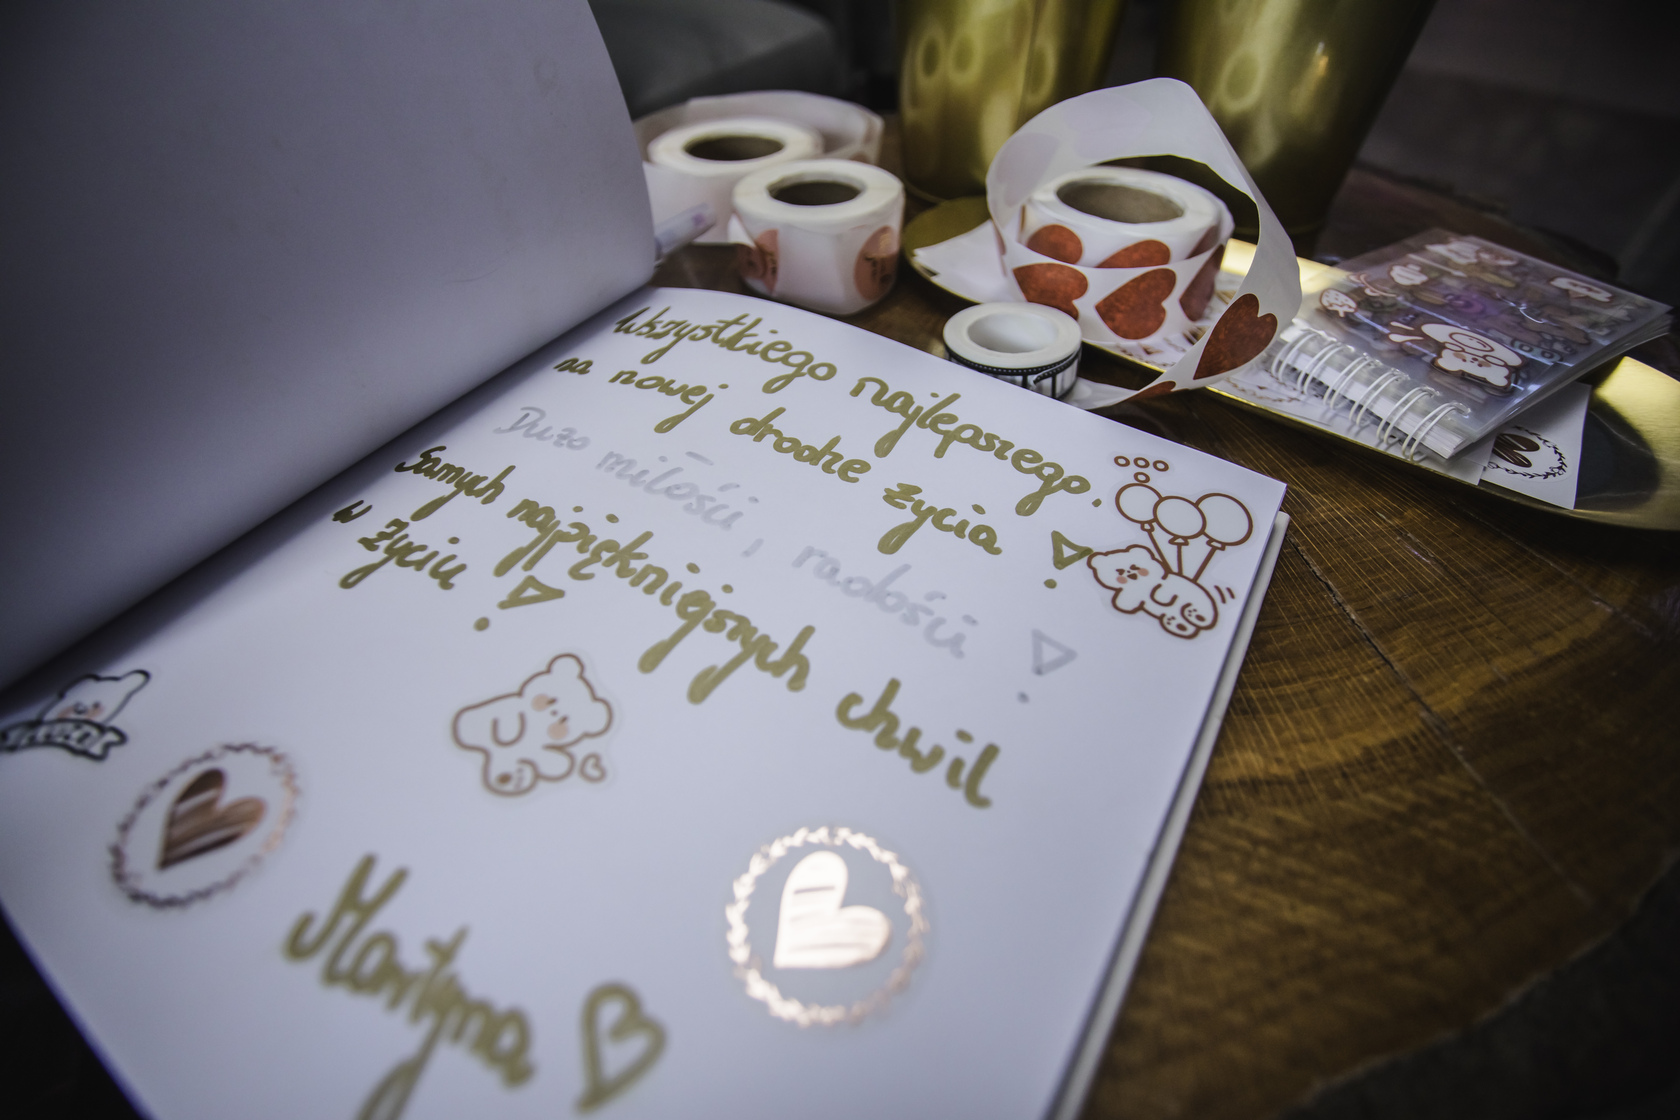 Wszystkiego najlepszego,
na nowej drodze życia!
Dużo miłości, radości!
Samych najpiękniejszych chwil
w życiu!
Martyna